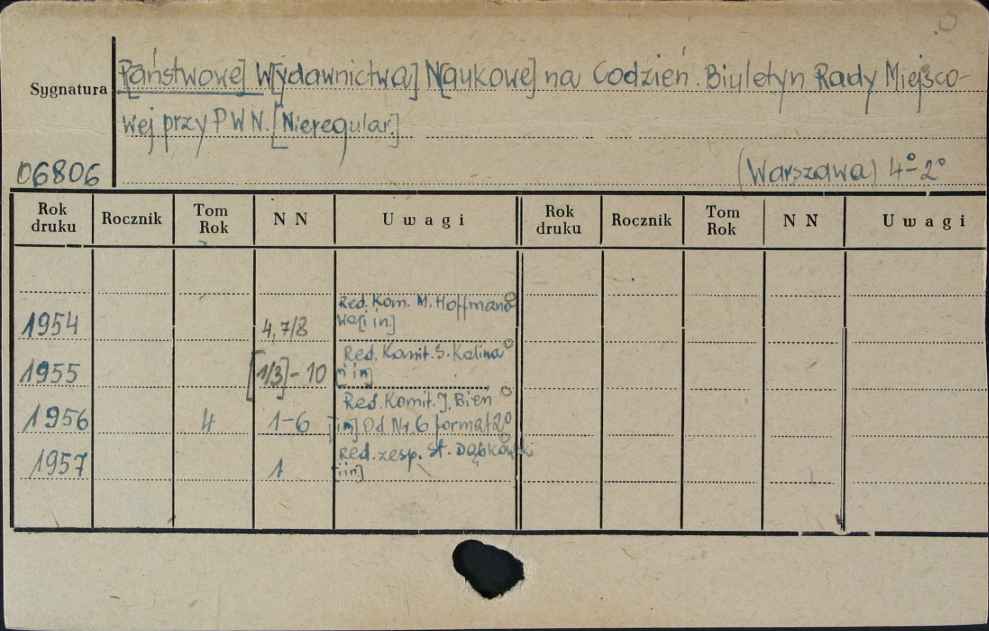 P[aństwowe] W[ydawnictwa] N[aukowe] na Codzień. Biuletyn Rady Miejsco-
Sygnatura
wej przy PWN. [Nieregular.]
06806
(Warszawa) 4°-2°
Rok druku Rocznik Tom Rok N N Uwagi Rok druku Rocznik Tom Rok N N Uwagi
Red. Kom. M. Hoffmano-
1954 4, 7/8 wa [i in.]
Red. Komit. S. Kalina
1955 [1/3]-10 [i in]
Red. Komit. J. Bien
1956 4 1-6 [i in] Od Nr. 6 format 2°
Red. zesp. St. Dąbkowski
1957 1 [i in]